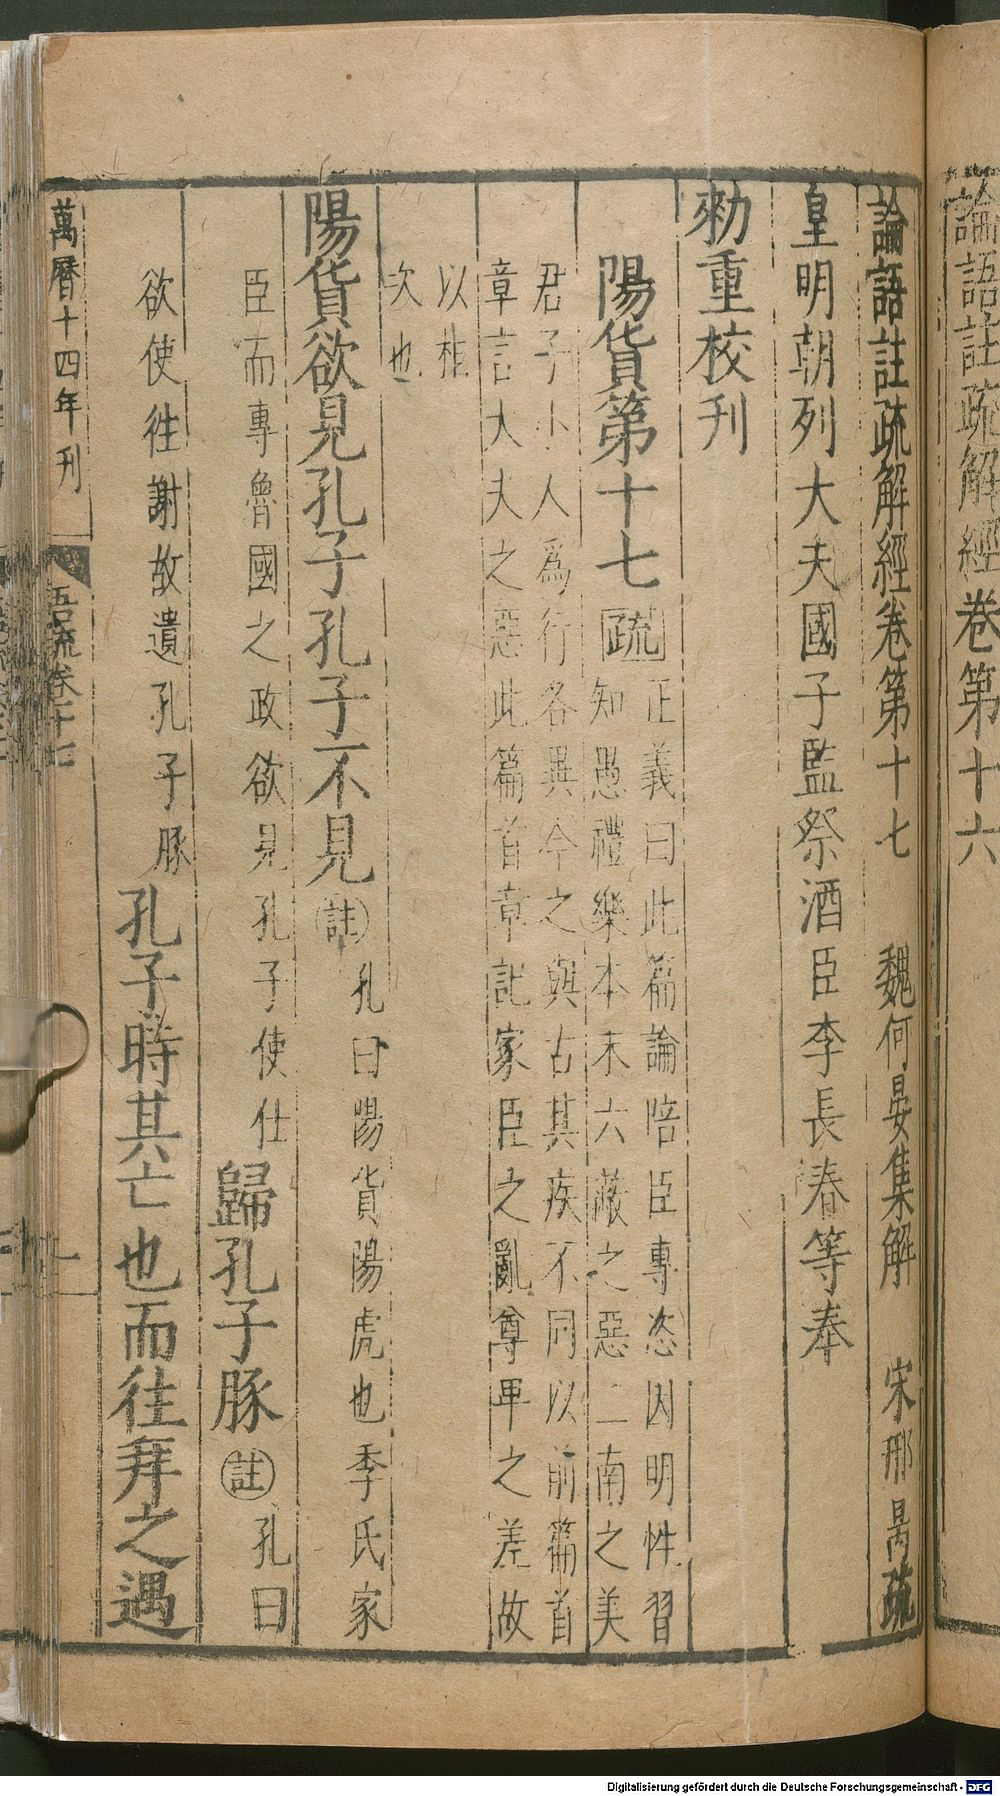 論語註疏解經卷第十六
論語註疏解經卷第十七 魏何晏集解 宋邢昺疏
皇明朝列大夫國子監祭酒臣李長春等奉
勑重校刊
陽貨第十七 疏 正義曰此篇論陪臣專恣因明性習
知愚禮樂本末六蔽之惡二南之美
君子小人爲行各異今之與古其疾不同以前篇首
章言大夫之惡此篇首章記家臣之亂尊卑之差故
以相
次也
陽貨欲見孔子孔子不見 註 孔曰陽貨陽虎也季氏家
臣而專魯國之政欲見孔子使仕 歸孔子豚 註 孔曰
欲使往謝故遺孔子豚 孔子時其亡也而往拜之遇
萬曆十四年刊
吾疏卷十七
一
Digitalisierung gefördert durch die Deutsche Forschungsgemeinschaft - DFG